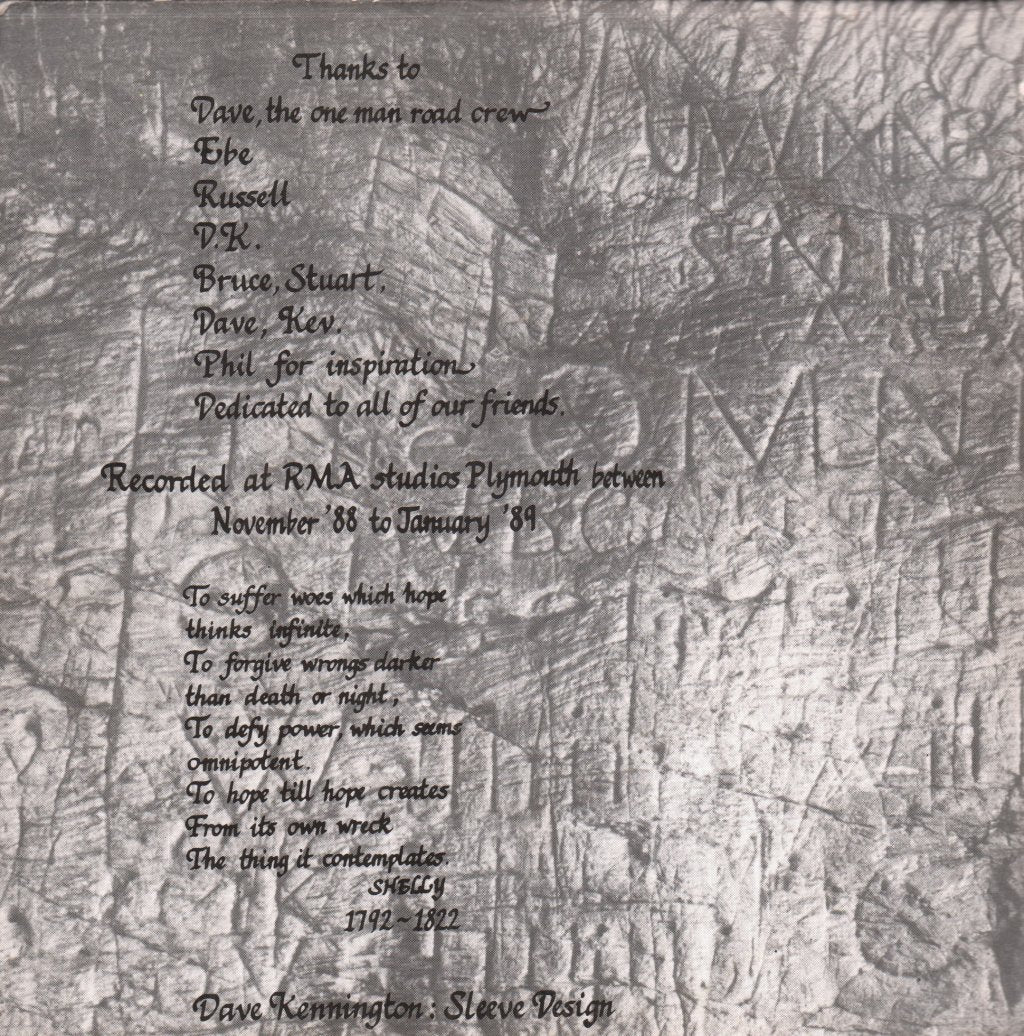 Thanks to
Dave, the one man road crew
Ebe
Russell
D.K.
Bruce, Stuart,
Dave, Kev.
Phil for inspiration
Dedicated to all of our friends.
Recorded at RMA studios Plymouth between
November '88 to January '89
To suffer woes which hope
thinks infinite,
To forgive wrongs darker
than death or night,
To defy power, which seems
omnipotent.
To hope till hope creates
From its own wreck
The thing it contemplates.
SHELLY
1792~1822
Dave Kennington: Sleeve Design